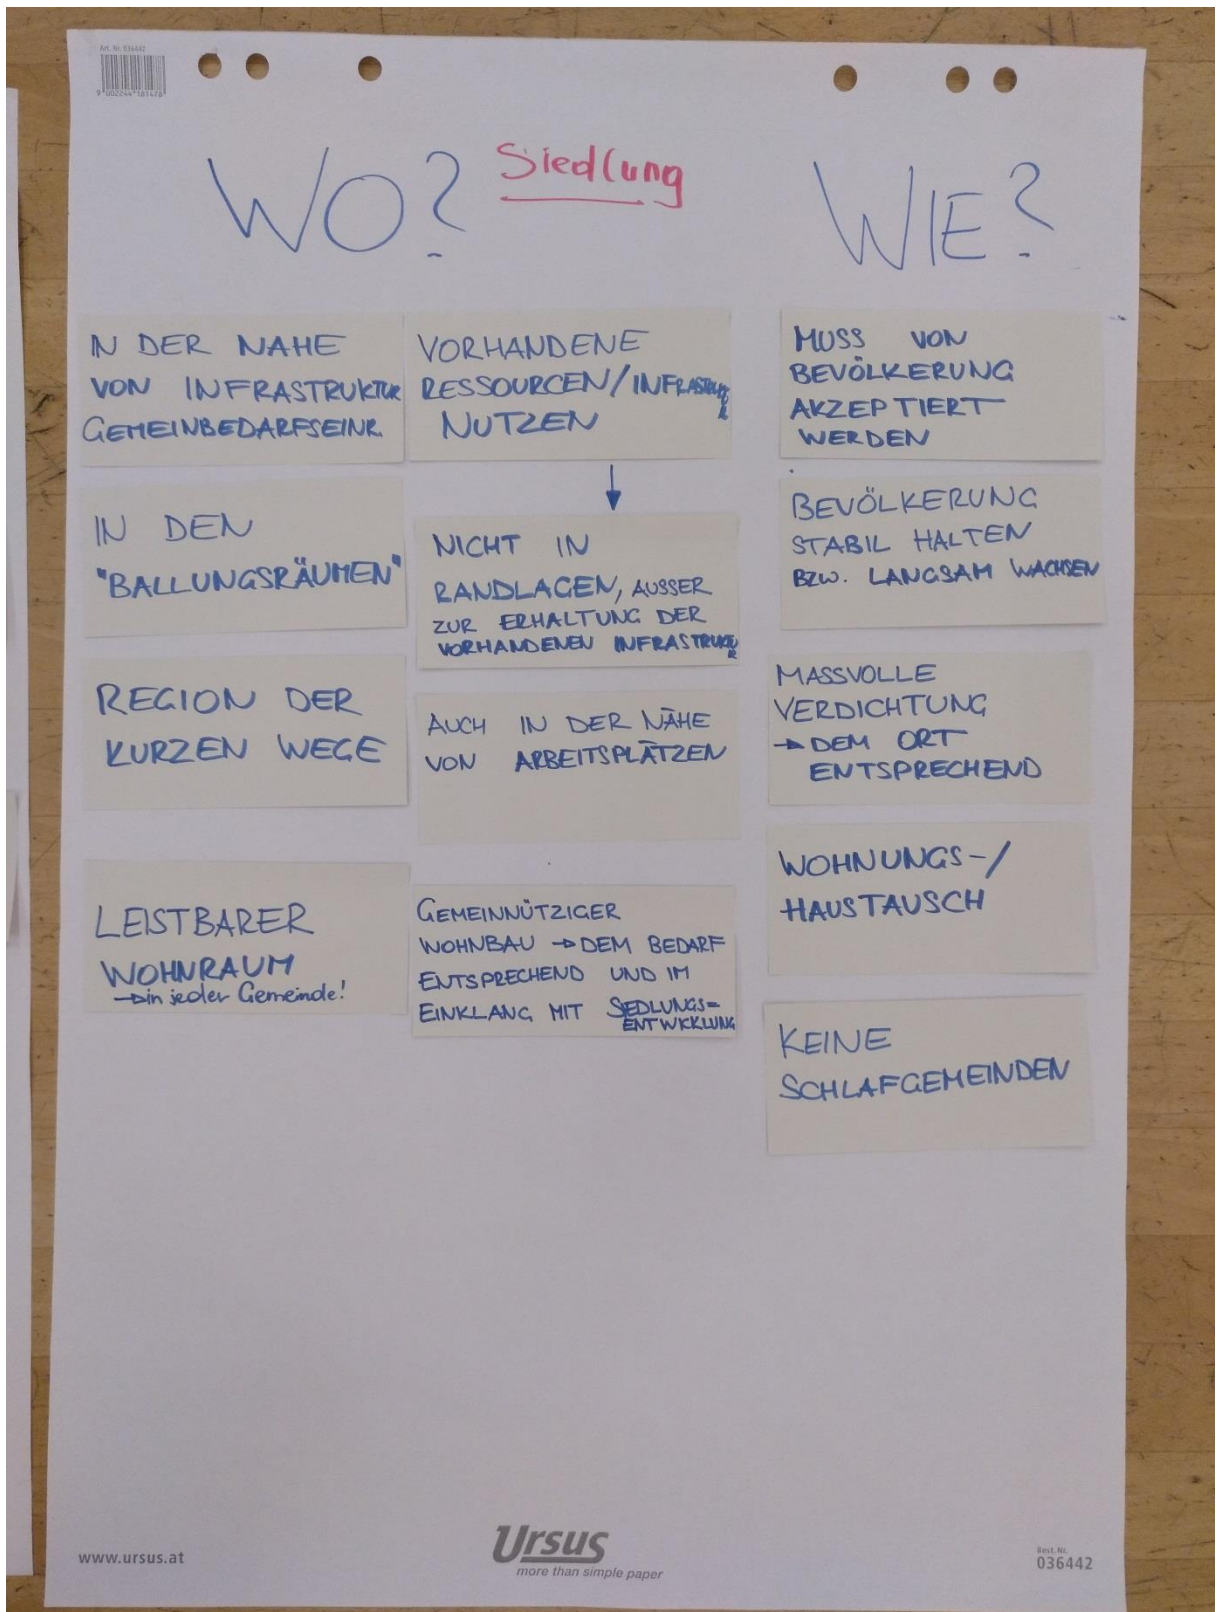 Art. Nr. 036442
9 002244 181478
WO?
Siedlung
WIE?
IN DER NAHE
VON INFRASTRUKTUR
GEMEINBEDARFSEINR.
IN DEN
"BALLUNGSRÄUMEN"
REGION DER
KURZEN WEGE
LEISTBARER
WOHNRAUM
→ in jeder Gemeinde!
VORHANDENE
RESSOURCEN/INFRASTRUKTUR
NUTZEN
↓
NICHT IN
RANDLAGEN, AUSSER
ZUR ERHALTUNG DER
VORHANDENEN INFRASTRUKTUR
AUCH IN DER NÄHE
VON ARBEITSPLÄTZEN
GEMEINNÜTZIGER
WOHNBAU → DEM BEDARF
ENTSPRECHEND UND IM
EINKLANG MIT SIEDLUNGS=
ENTWICKLUNG
MUSS VON
BEVÖLKERUNG
AKZEPTIERT
WERDEN
BEVÖLKERUNG
STABIL HALTEN
BZW. LANGSAM WACHSEN
MASSVOLLE
VERDICHTUNG
→ DEM ORT
ENTSPRECHEND
WOHNUNGS-/
HAUSTAUSCH
KEINE
SCHLAFGEMEINDEN
www.ursus.at
Ursus
more than simple paper
Best. Nr.
036442